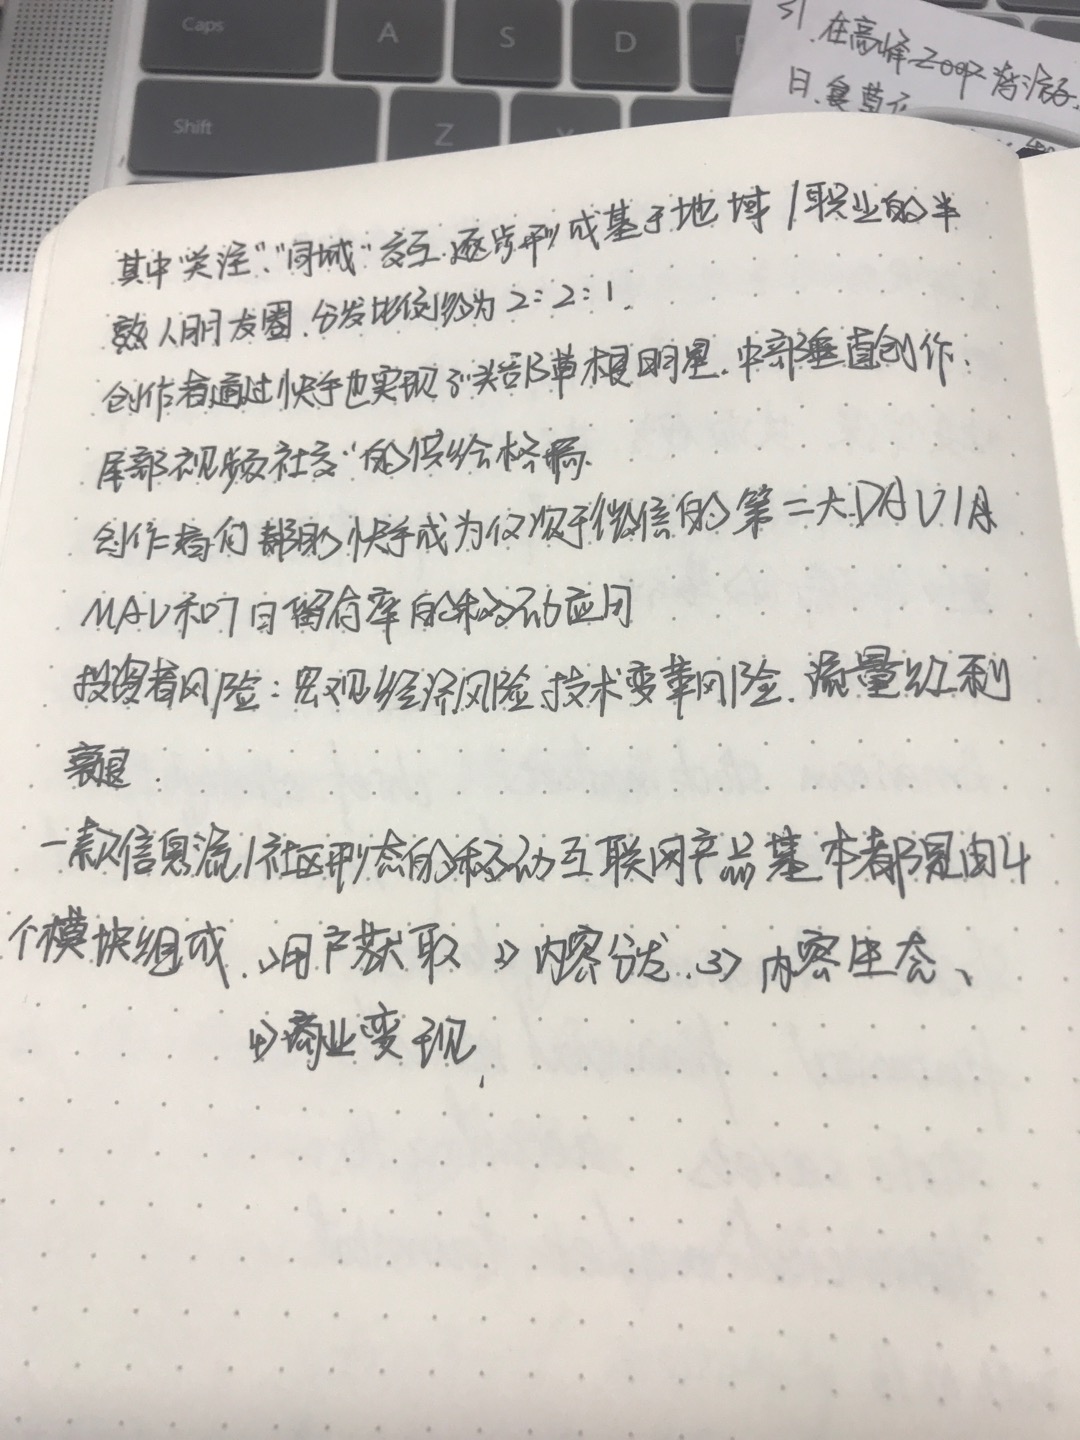 Caps
A
S
D
Shift
Z
在高峰
日
其中"关注"、"同城"交互.逐步形成基于地域/职业的半
熟人朋友圈.分发比例约为2:2:1.
创作者通过快手也实现了"头部草根明星.中部垂直创作.
尾部视频社交"的供给格局.
创作者们帮助快手成为仅次于微信的第二大DAU/月
MAU和7日留存率的移动应用
投资者风险:宏观经济风险.技术变革风险.流量红利
衰退.
一款信息流/社区形态的移动互联网产品基本都是由4
个模块组成.1)用户获取 2)内容分发.3)内容生态、
4)商业变现.